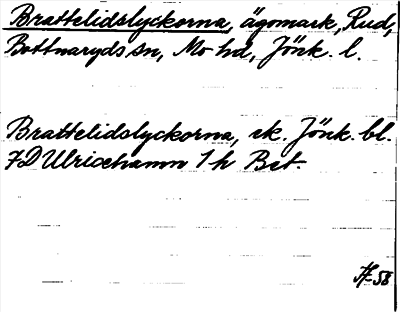 Brattelidslyckorna, ägomark, Rud,
Bottnaryds sn, Mo hd, Jönk. l.
Brattelidslyckorna, ek. Jönk. bl.
7D Ulricehamn 1 h Bet.
58